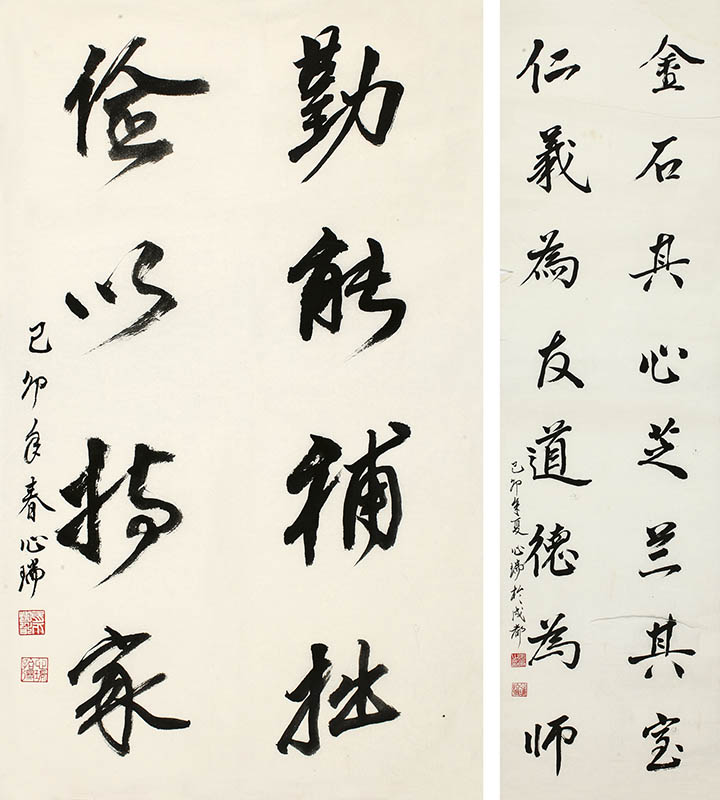 勤能補拙
俭以持家
己卯年春心瑞
金石其心芝兰其室
仁義為友道德為師
己卯年夏心瑞於成都